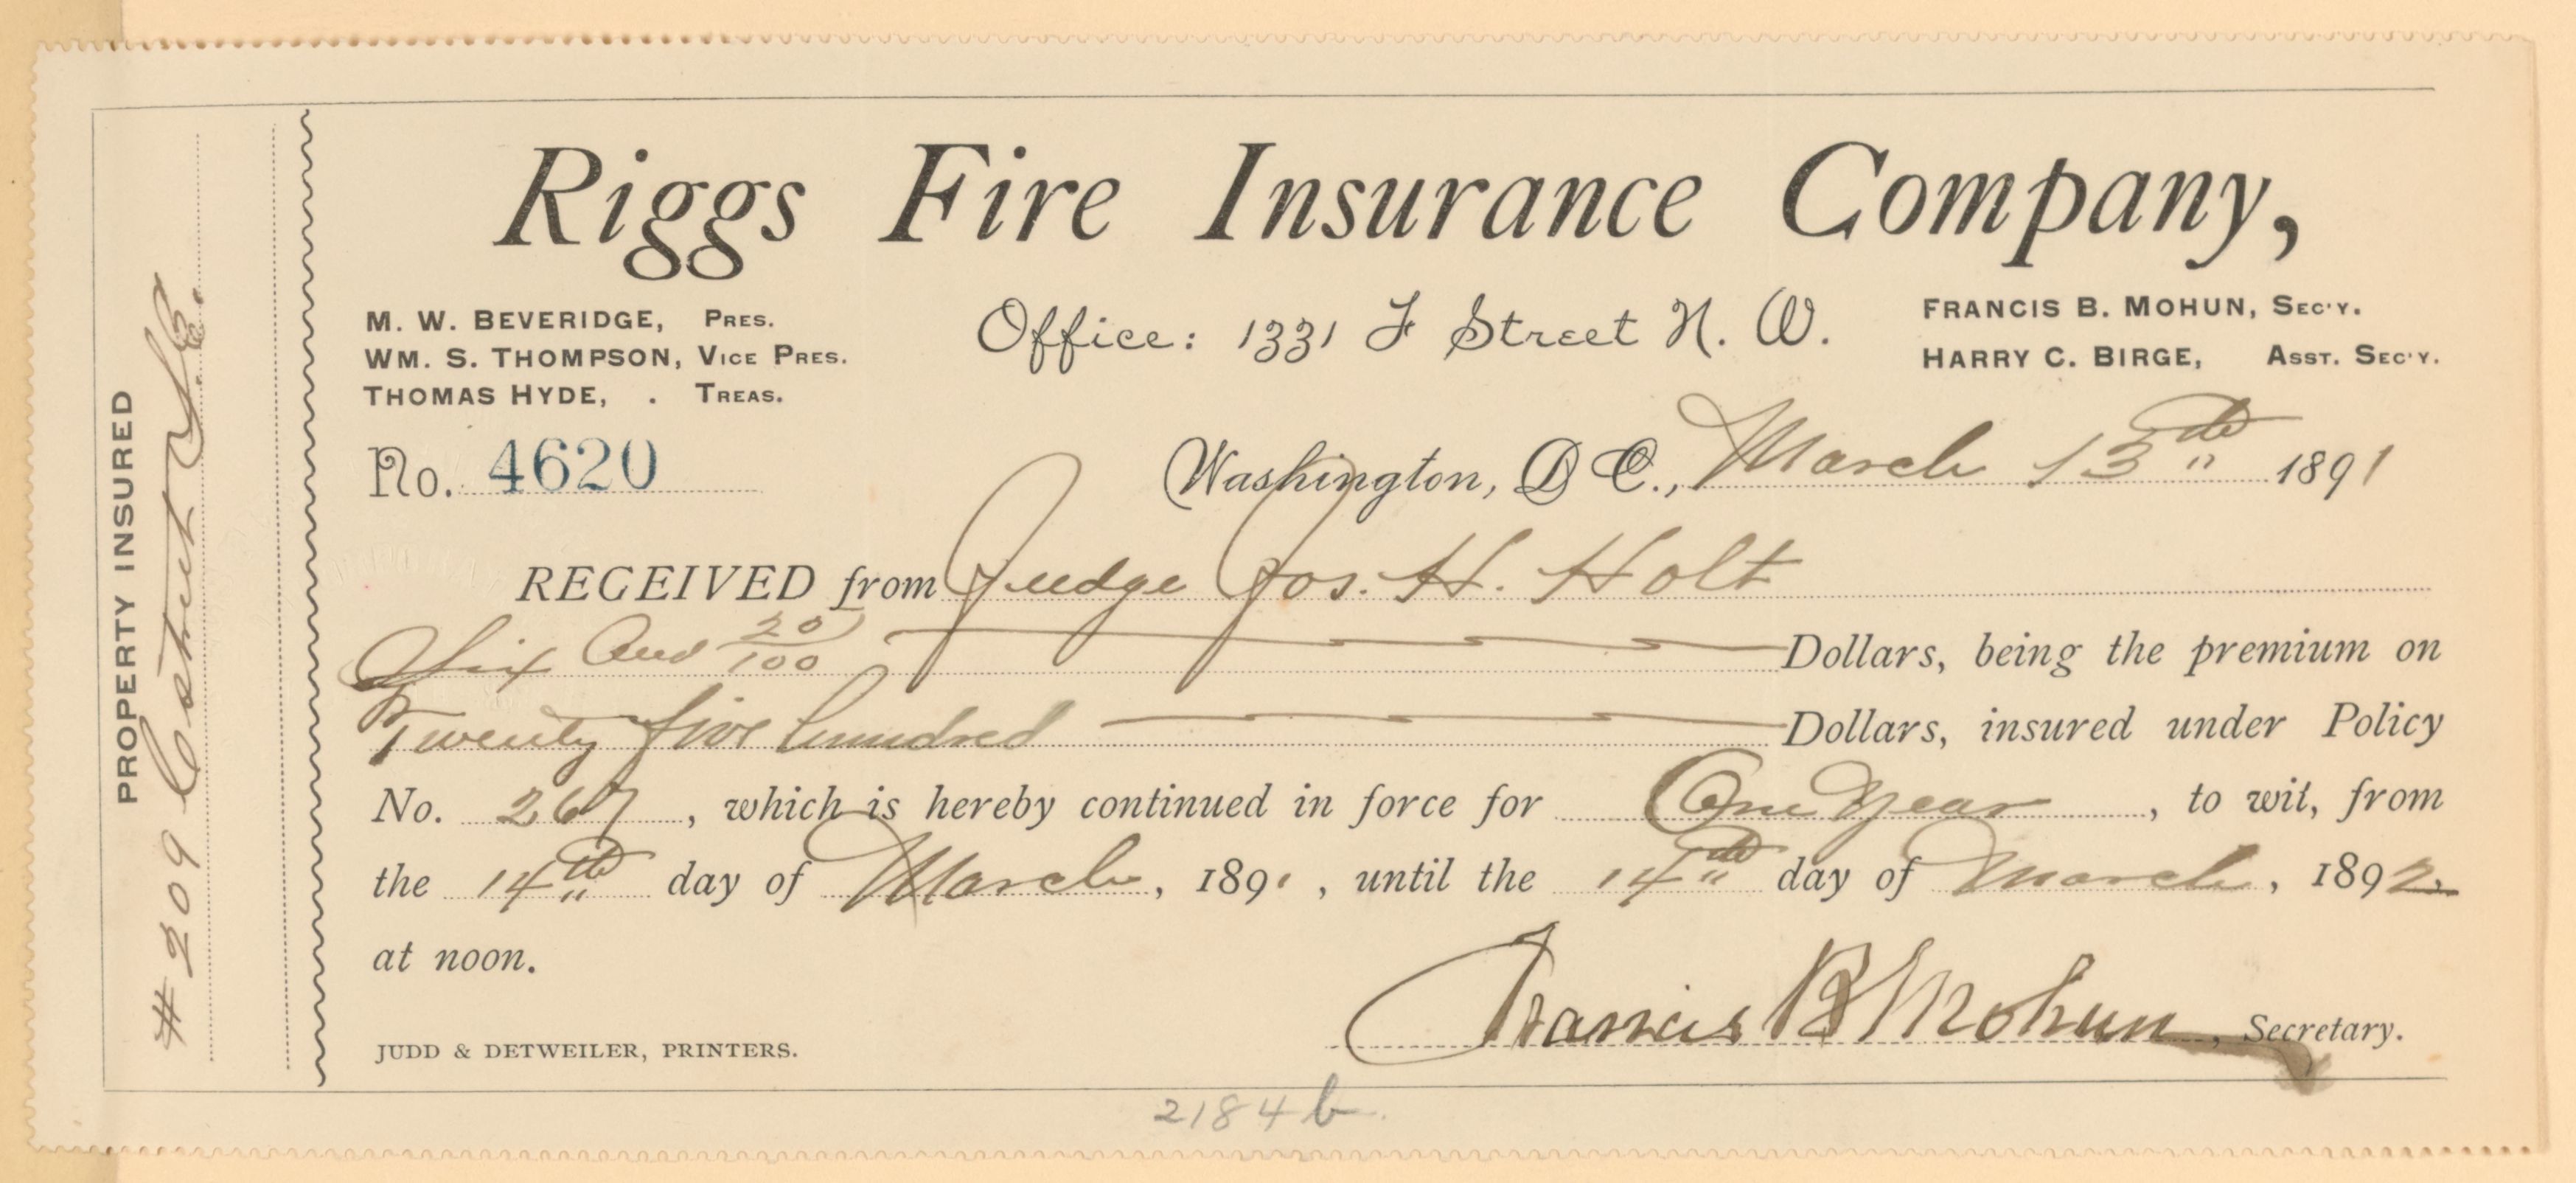 PROPERTY INSURED
# 209 C Street S.E.
Riggs Fire Insurance Company,
M. W. BEVERIDGE, PRES.
WM. S. THOMPSON, VICE PRES.
THOMAS HYDE, . TREAS.
Office: 1331 F Street N. W.
FRANCIS B. MOHUN, SEC'Y.
HARRY C. BIRGE, ASST. SEC'Y.
No. 4620
Washington, D C., March 13th 1891
RECEIVED from Judge Jos. H. Holt
Six and 20/100 Dollars, being the premium on
Twenty five hundred Dollars, insured under Policy
No. 267, which is hereby continued in force for One Year, to wit, from
the 14th day of March, 1891, until the 14th day of March, 1892
at noon.
Francis B Mohun, Secretary.
JUDD & DETWEILER, PRINTERS.
2184 b